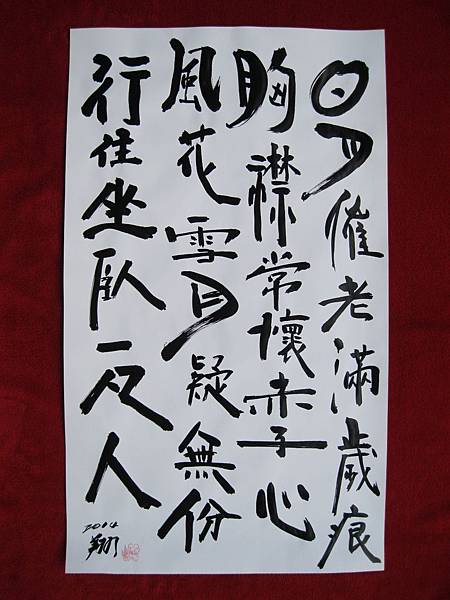 日月催老滿歲痕
胸襟常懷赤子心
風花雪月疑無份
行住坐臥一人
2014
翔